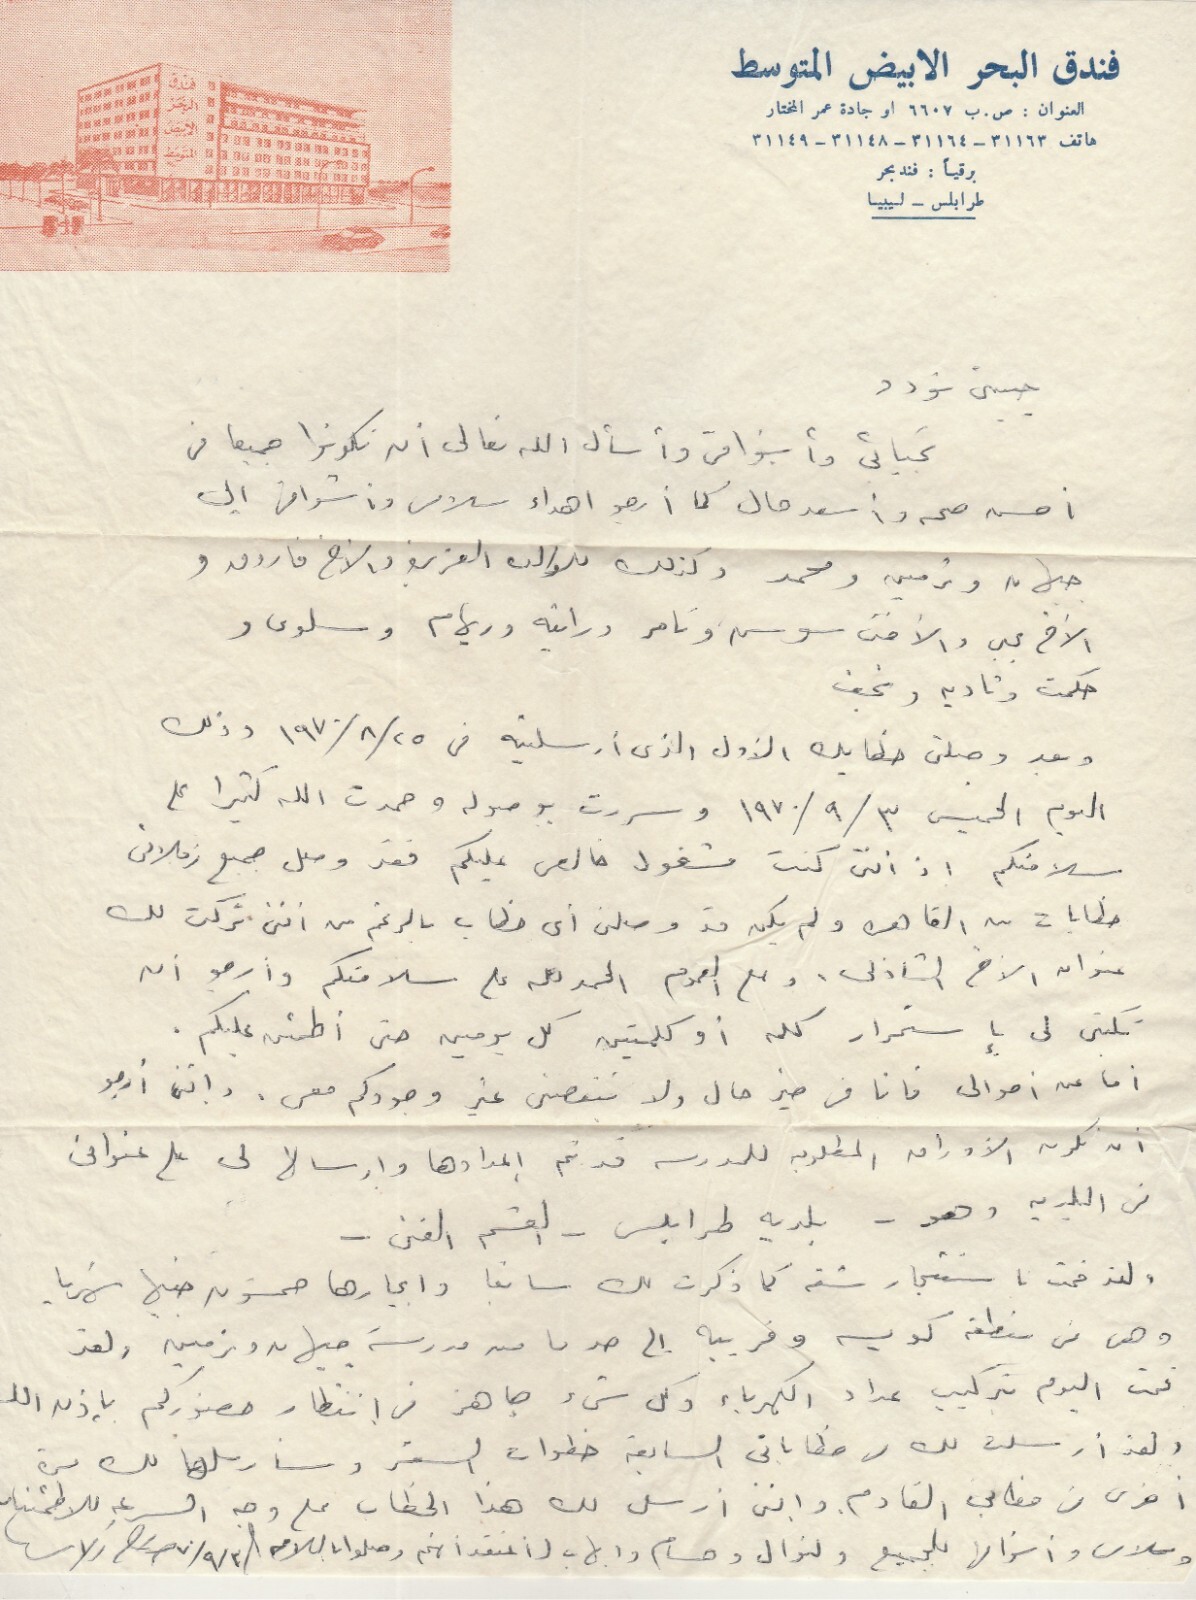 فندق البحر الابيض المتوسط
العنوان : ص.ب ٦٦٠٧ او جادة عمر المختار
هاتف ٣١١٦٣ – ٣١١٦٤ – ٣١١٤٨ – ٣١١٤٩
برقياً : فندبحر
طرابلس – ليبيا
فندق
البحر
الابيض
المتوسط
حبيبتى
تحياتى وأشواقى وأسأل الله تعالى أن تكونوا جميعا فى
أحسن صحه وأسعد حال كما أرجو اهداء سلامى وأشواقى الى
جيهان ونرمين ومحمد وكذلك للوالده العزيزه والأخ فاروق و
الأخ والأخت سوسن وتامر ورانيه وريهام وسلوى و
حكمت وناديه
وبعد وصلنى خطابك الأول الذى أرسلتيه فى ٢٥/٨/١٩٧٠ وذلك
اليوم الخميس ٣/٩/١٩٧٠ وسررت بوصوله وحمدت الله كثيرا على
سلامتكم اذ أننى كنت مشغول خالص عليكم فقد وصل جميع زملائى
خطابات من القاهره ولم يكن قد وصلنى أى خطاب بالرغم من أننى تركت لك
عنوان الأخ الشاذلى . وعلى العموم الحمد لله على سلامتكم وأرجو أن
تكتبى لى بإستمرار كلمه أو كلمتين كل يومين حتى أطمئن عليكم .
أما عن أحوالى فأنا فى خير حال ولا ينقصنى غير وجودكم معى . وإننى أرجو
أن تكون الأوراق المطلوبه للمدرسه قد تم إعدادها وإرسالها لى على عنوانى
فى البلديه وهو – بلديه طرابلس – القسم الفنى –
ولقد قمت بإستئجار شقه كما ذكرت لك سابقا وايجارها خمسون جنيها شهريا
وهى فى منطقه كويسه وقريبه الى حد ما من مدرسة جيهان ونرمين ولقد
قمت اليوم بتركيب عداد الكهرباء وكل شىء جاهز فى إنتظار حضوركم بإذن الله
ولقد أرسلت لك فى خطاباتى السابقة خطوات السفر وسأرسلها لك مرة
أخرى فى خطابى القادم وإننى أرسل لك هذا الخطاب على وجه السرعه للاطمئنان
وسلامى وأشواقى للجميع ولنوال وحسام وايهاب أعتقد أنهم وصلوا بالسلامه ٣/٩/٧٠